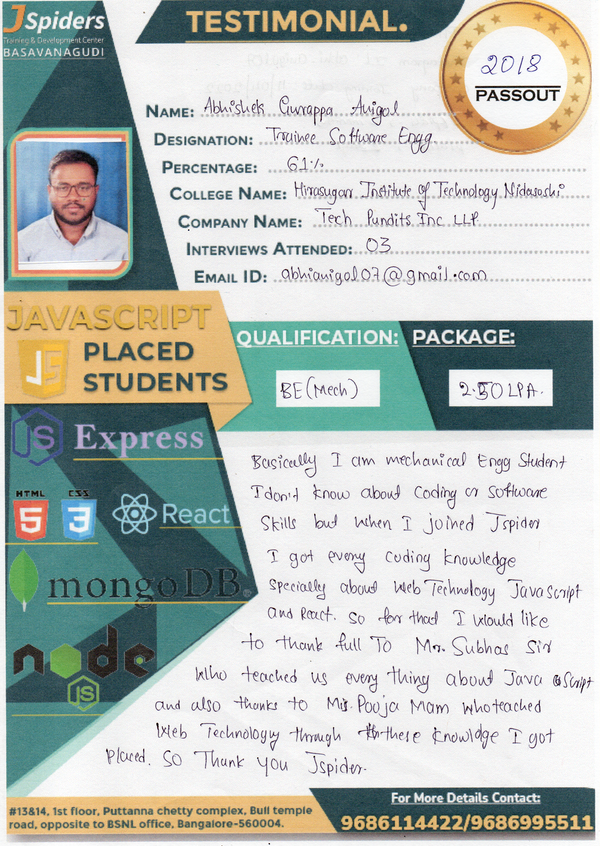 JSpiders
Training & Development Center
BASAVANAGUDI
TESTIMONIAL.
2018
PASSOUT
NAME: Abhishek Gurappa Anigol
DESIGNATION: Trainee Software Engg
PERCENTAGE: 61%
COLLEGE NAME: Hirasugar Institute of Technology Nidasoshi
COMPANY NAME: Tech Pundits Inc LLP
INTERVIEWS ATTENDED: 03
EMAIL ID: abhianigol07@gmail.com
JAVASCRIPT
JS PLACED
STUDENTS
QUALIFICATION: PACKAGE:
BE(Mech) 2.50 LPA.
JS Express
HTML CSS
5 3 React
mongoDB®
node
JS
Basically I am mechanical Engg Student
I don't know about Coding or Software
Skills but when I joined Jspider
I got every coding knowledge
specially about Web Technology JavaScript
and React. so for that I would like
to thank full To Mr. Subhas Sir
Who teached us every thing about Java Script
and also thanks to Ms. Pooja Mam who teached
Web Technology through these knowldge I got
Placed. SO Thank you Jspider.
#13&14, 1st floor, Puttanna chetty complex, Bull temple
road, opposite to BSNL office, Bangalore-560004.
For More Details Contact:
9686114422/9686995511